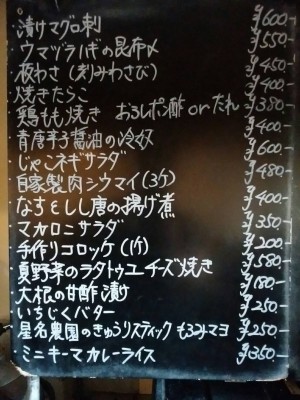 漬けマグロ刺 ¥600-
ウマヅラハギの昆布〆 ¥550-
板わさ(刻みわさび) ¥450-
焼きたらこ ¥400-
鶏もも焼き おろしポン酢 or たれ ¥380-
青唐辛子醤油の冷奴 ¥400-
じゃこネギサラダ ¥600-
自家製肉シウマイ(3ケ) ¥480-
なすとしし唐の揚げ煮 ¥400-
マカロニサラダ ¥350-
手作りコロッケ(1ケ) ¥200-
夏野菜のラタトゥユチーズ焼き ¥580-
大根の甘酢漬け ¥180-
いちじくバター ¥250-
星名農園のきゅうりスティック もろみマヨ ¥250-
ミニキーマカレーライス ¥350-